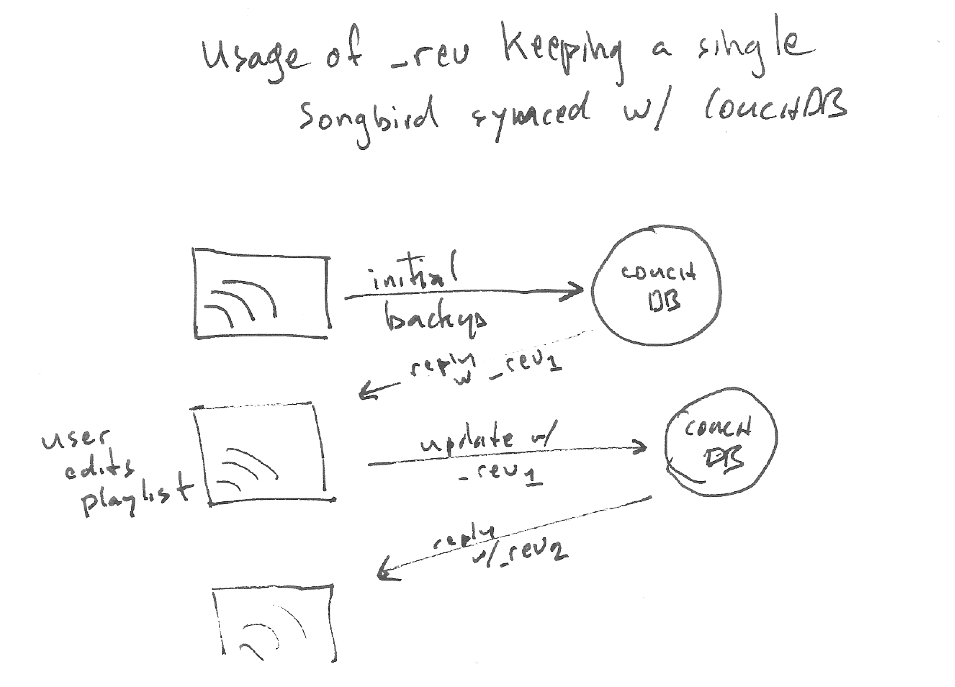 Usage of _rev Keeping a single
Songbird synced w/ CouCHDB
initial
backup
COUCH
DB
reply
w _rev1
user
edits
playlist
update w/
_rev1
COUCH
DB
reply
w/ _rev2